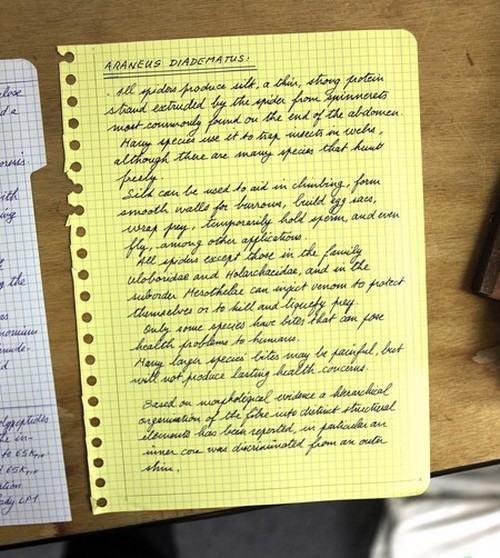 ARANEUS DIADEMATUS:
. All spiders produce silk, a thin, strong protein
strand extruded by the spider from spinnerets
most commonly found on the end of the abdomen.
Many species use it to trap insects in webs,
although there are many species that hunt
freely.
Silk can be used to aid in climbing, form
smooth walls for burrows, build egg sacs,
wrap prey, temporarily hold sperm, and even
fly, among other applications.
All spiders except those in the family
Uloboridae and Holarchaeidae, and in the
suborder Mesothelae can inject venom to protect
themselves or to kill and liquefy prey.
Only some species have bites that can pose
health problems to humans.
Many larger species' bites may be painful, but
will not produce lasting health concerns.
Based on morphological evidence a hierarchical
organisation of the fibre into distinct structural
elements has been reported, in particular an
inner core was discriminated from an outer
skin.